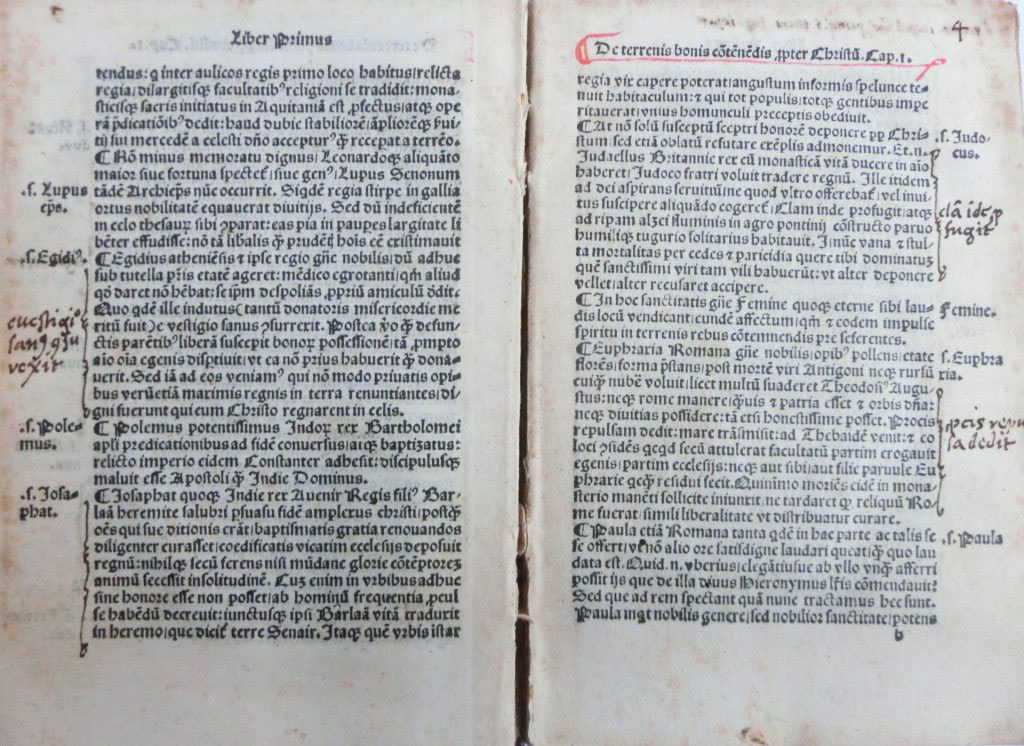 Liber Primus
tendus: q̃ inter aulicos regis primo loco habitus/relicta
regia/dilargitisqꝫ facultatibꝰ religioni se tradidit: mona-
sticisqꝫ sacris initiatus in Aquitaniã est ꝓfectus/atqꝫ ope
rã p̃dicatiõibꝰ dedit: haud dubie stabiliorẽ/ãpliorẽqꝫ
tij sui mercedẽ a celesti dño accepturꝰ q̃ recepat a terreo.
¶ Nõ minus memoratu dignus/Leonardoqꝫ aliquãto
maior siue fortuna spectet/siue genꝰ/Lupus Senonum
tãdẽ Archiep̃s nũc occurrit. Siqdẽ regia stirpe in gallia
ortus nobilitatẽ equauerat diuitijs. Sed dũ indeficientẽ
in celo thesaurũ sibi ꝯparat: eas pia in paupes largitate li
bẽter effudisse: nõ tã libalis q̃ prudẽtꝭ hois eẽ existimauit
.s. Lupus
ep̃s.
¶ Egidius atheniẽsis ⁊ ipse regio gñe nobilis/dũ adhuc
sub tutella p̃ris etatẽ ageret: mẽdico egrotanti/qm̃ aliud
qd daret nõ hẽbat: se ip̃m despoliãs/ꝓpriũ amiculũ ddit.
Quo qdẽ ille indutus(tantũ donatoris misericordie me
ritũ fuit)e vestigio sanus ꝯsurrexit. Postea ṽo qꝫ defun-
ctis parẽtibꝰ/liberã suscepit bonoꝝ possessionẽ: tã ꝓmpto
aĩo oĩa egenis disptiuit/vt ea nõ prius habuerit q̃ dona-
uerit. Sed iã ad eos veniamꝰ qui nõ modo priuatis opi-
bus verũetiã maximis regnis in terra renuntiantes/di-
gni fuerunt qui cum Christo regnarent in celis.
.s. Egidiꝰ.
¶ Polemus potentissimus Indoꝝ rex Bartholomei
apli predicationibus ad fidẽ conuersus/atqꝫ baptizatus:
relicto imperio eidem Constanter adhesit: discipulusqꝫ
maluit esse Apostoli q̃ Indie Dominus.
.s. Pole-
mus.
¶ Iosaphat quoqꝫ Indie rex Auenir Regis filiꝰ Bar-
laã heremite salubri ꝑsuasu fidẽ amplexus christi/postq̃
oẽs qui sue ditionis erãt/baptismatis gratia renouandos
diligenter curasset/coedificatis vicatim ecclesijs deposuit
regnũ: nihilqꝫ secũ ferens nisi mũdane glorie cõtẽptorẽ
animũ secessit insolitudinẽ. Cuꝫ enim in vrbibus adhuc
sine honore esse non posset/ab hominũ frequentia/ꝓcul
se habẽdũ decreuit: iunctusqꝫ ipsi Barlaã vitã traduxit
in heremo/que dicit̃ terre Senair. Itaqꝫ quẽ vrbis istar
.s. Iosa-
phat.
4
¶ De terrenis bonis cõtẽnẽdis ꝓpter Christũ. Cap.1.
regia vix capere poterat/angustum informis spelunce te-
nuit habitaculum: ⁊ qui tot populis/totqꝫ gentibus impe
ritauerat/vnius homunculi preceptis obediuit.
¶ At nõ solũ susceptũ sceptri honorẽ deponere ꝓp Chri-
stum/sed etiã oblatũ refutare exẽplis admonemur. Et.n.
Judaellus Britannie rex cũ monasticã vitã ducere in aĩo
haberet/Judoco fratri voluit tradere regnũ. Ille itidem
ad dei aspirans seruitiũ/ne quod vltro offerebat̃/vel inui
tus suscipere aliquãdo cogeret̃/Clam inde profugit/atqꝫ
ad ripam alzei fluminis in agro pontinij cõstructo paruo
humiliqꝫ tugurio solitarius habitauit. I nũc vana ⁊ stul-
ta mortalitas per cedes ⁊ paricidia quere tibi dominatuꝫ
quẽ sanctissimi viri tam vili habuerũt: vt alter deponere
vellet/alter recusaret accipere.
.s. Judo-
cus.
clã ide ꝓ
fugit
¶ In hoc sanctitatis gñe Femine quoqꝫ eterne sibi lau-
dis locũ vendicant/eũdẽ affectum/qm̃ ⁊ codem impulse
spiritu in terrenis rebus cõtemnendis pre seferentes.
Femine.
¶ Euphraxia Romana gñe nobilis/opibꝰ pollens/etate
florẽs/forma p̃stans/post mortẽ viri Antigoni necqꝫ rursũ
cuiq̃ nubẽ voluit/licet multũ suaderet Theodosiꝰ Augu-
stus: neqꝫ rome manere/q̃uis ⁊ patria esset ⁊ orbis dña:
necqꝫ diuitias possidere: tã etsi honestissime posset. Procis
repulsam dedit: mare trãsmisit: ad Thebaidẽ venit: ⁊ co
loci ꝯsidẽs qcqd secũ attulerat facultatũ partim erogauit
egenis/partim ecclesijs: neqꝫ aut sibi/aut filie paruule Eu
phraxie qcq̃ residui fecit. Quinimmo moriẽs eidẽ in mona-
sterio manẽti sollicite iniunxit/ne tardaret qꝫ reliquũ Ro-
me fuerat/simili liberalitate vt distribuatur curare.
s. Euphra
xia.
pcis repu
lsa dedit
¶ Paula etiã Romana tanta qdẽ in hac parte ac talis se
se offert/vt nõ alio ore satisdigne laudari queat/q̃ quo lau
data est. Quid.n.vberius/elegãtiusue ab vllo vnq̃ afferri
possit ijs que de illa diuus Hieronymus lr̃is cõmendauit?
Sed que ad rem spectant quã nunc tractamus hec sunt.
Paula inqt nobilis genere/sed nobilior sanctitate/potens
.s. Paula
b